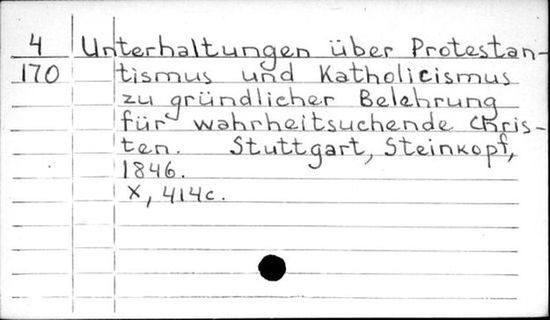 4 Unterhaltungen über Protestan-
170 tismus und Katholicismus
zu gründlicher Belehrung
für wahrheitsuchende Chris-
ten. Stuttgart, Steinkopf,
1846.
X, 414c.